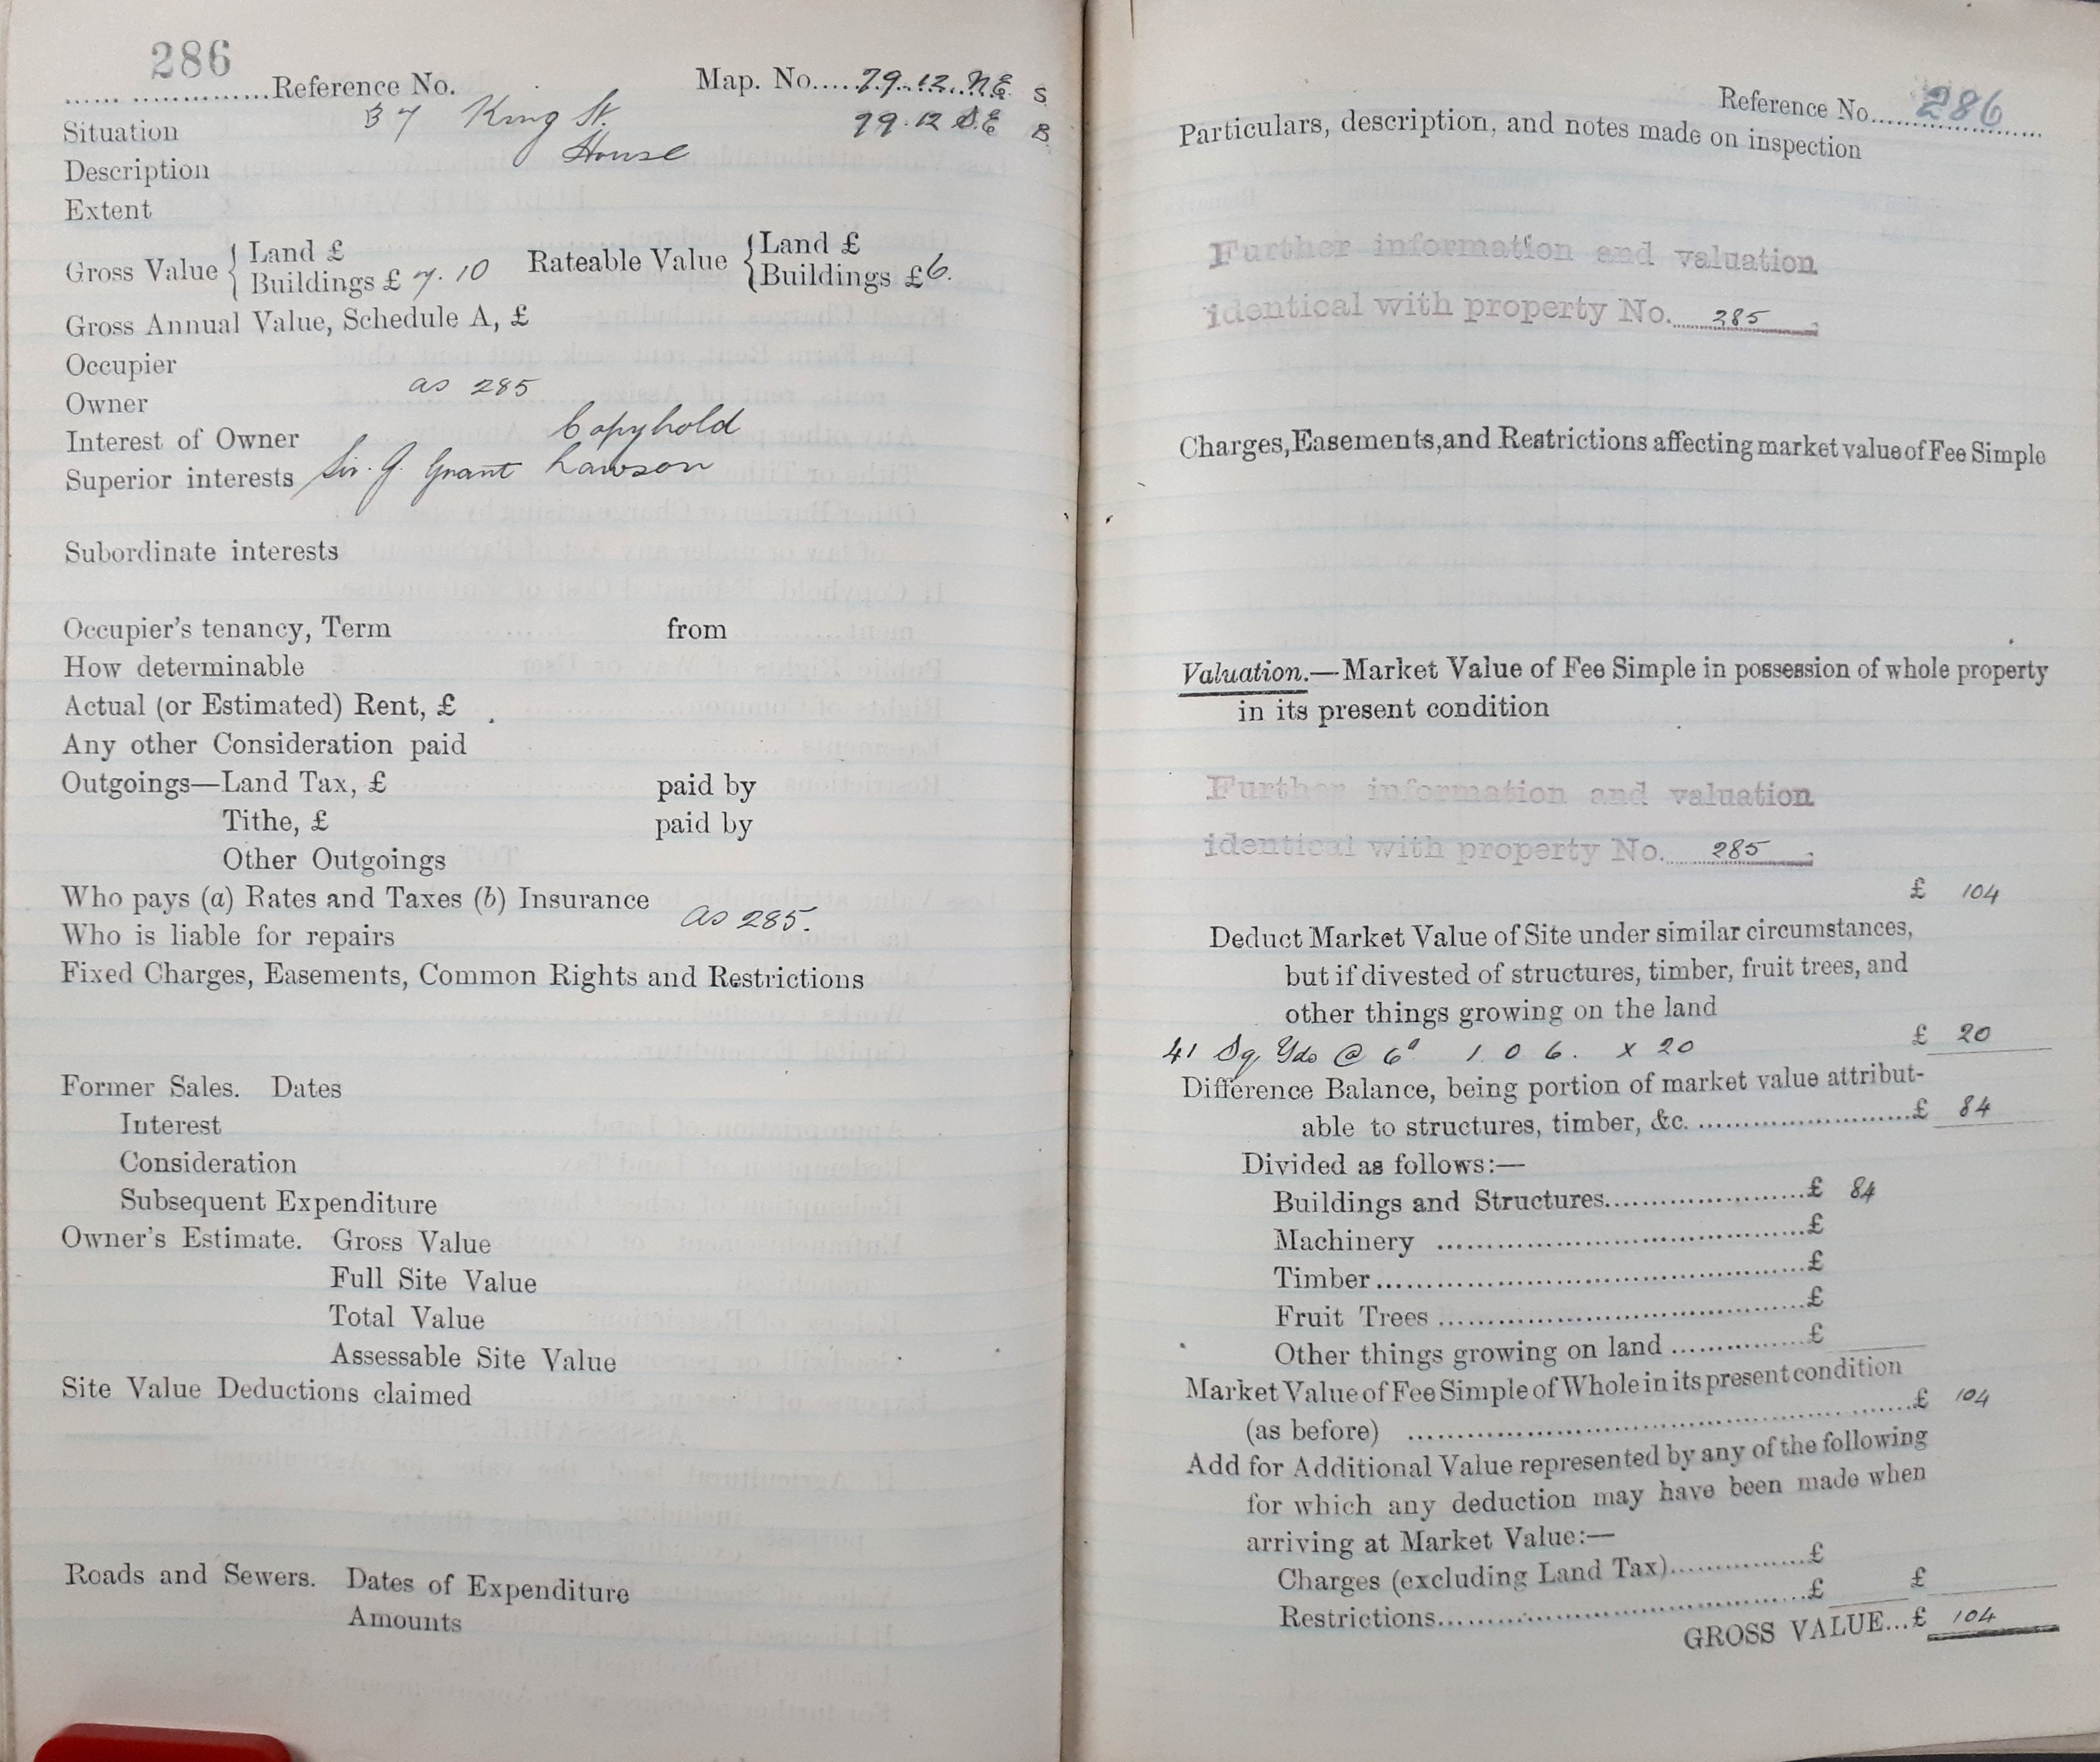 286
...... ..............Reference No. Map. No.....79.12.NE S
Situation 37 King St. 79.12 S.E B
Description House
Extent
Gross Value { Land £
Buildings £ 7.10 Rateable Value { Land £
Buildings £6.
Gross Annual Value, Schedule A, £
Occupier
as 285
Owner
Interest of Owner Copyhold
Superior interests Sir. J. Grant Lawson
Subordinate interests
Occupier's tenancy, Term from
How determinable
Actual (or Estimated) Rent, £
Any other Consideration paid
Outgoings—Land Tax, £ paid by
Tithe, £ paid by
Other Outgoings
Who pays (a) Rates and Taxes (b) Insurance
as 285.
Who is liable for repairs
Fixed Charges, Easements, Common Rights and Restrictions
Former Sales. Dates
Interest
Consideration
Subsequent Expenditure
Owner's Estimate. Gross Value
Full Site Value
Total Value
Assessable Site Value
Site Value Deductions claimed
Roads and Sewers. Dates of Expenditure
Amounts
Reference No....286
Particulars, description, and notes made on inspection
Further information and valuation
identical with property No. 285
Charges, Easements, and Restrictions affecting market value of Fee Simple
Valuation.—Market Value of Fee Simple in possession of whole property
in its present condition
Further information and valuation
identical with property No. 285
£ 104
Deduct Market Value of Site under similar circumstances,
but if divested of structures, timber, fruit trees, and
other things growing on the land
41 Sq Yds @ 6d 1. 0 6. x 20 £ 20
Difference Balance, being portion of market value attribut-
able to structures, timber, &c. ........................£ 84
Divided as follows:—
Buildings and Structures......................£ 84
Machinery ......................£
Timber......................£
Fruit Trees ......................£
Other things growing on land ...............£
Market Value of Fee Simple of Whole in its present condition
(as before) ......................£ 104
Add for Additional Value represented by any of the following
for which any deduction may have been made when
arriving at Market Value:—
Charges (excluding Land Tax)...............£
Restrictions......................£ £
GROSS VALUE...£ 104